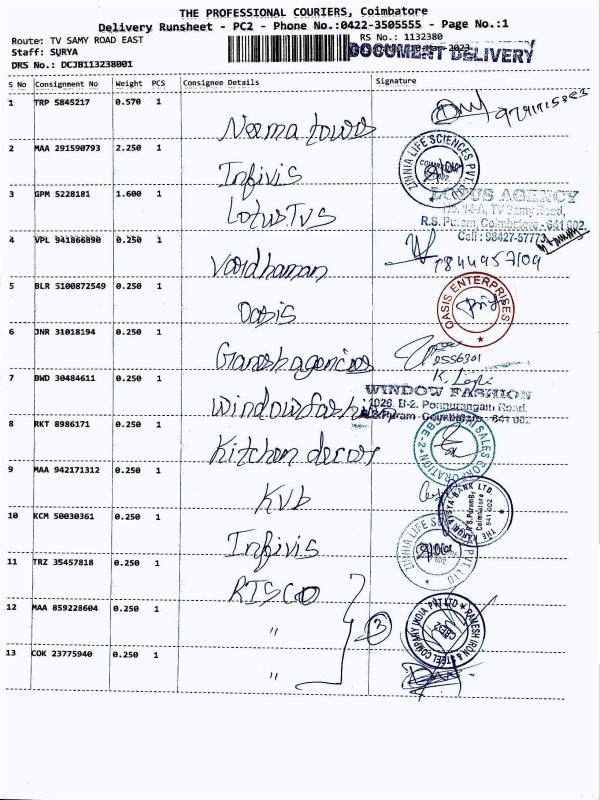 THE PROFESSIONAL COURIERS, Coimbatore
Delivery Runsheet - PC2 - Phone No.:0422-3505555 - Page No.:1
Route: TV SAMY ROAD EAST RS No.: 1132380
Staff: SURYA
DOCUMENT DELIVERY
DRS No.: DCJB113238001
S No Consignment No Weight PCS Consignee Details Signature
1 TRP 5845217 0.570 1 Neema towers
2 MAA 291590793 2.250 1 Infivis
ZINNIA LIFE SCIENCES PVT.
3 GPM 5228181 1.600 1 Lotus TVS
LOTUS AGENCY
No. 14-A, TV Samy Road,
R.S. Puram, Coimbatore - 641 002.
Cell : 98427-57773
4 VPL 941866890 0.250 1 Vardhaman
7844957109
5 BLR 5100872549 0.250 1 Oasis
OASIS ENTERPRISES
6 JNR 31018194 0.250 1 Ganesh agencies
7 BWD 30484611 0.250 1 Window fashion
WINDOW FASHION
Ponnurangam Road,
R.S. Puram - Coimbatore - 641 002
8 RKT 8986171 0.250 1 Kitchen decor
SALES CORPORATION
9 MAA 942171312 0.250 1 KVb
THE KARUR VYSYA BANK LTD.
R.S.Puram Br.
Coimbatore
641 002
10 KCM 50030361 0.250 1 Infivis
ZINNIA LIFE SCIENCES PVT LTD
11 TRZ 35457818 0.250 1 RISCO
12 MAA 859228604 0.250 1 " 3
RAMESH IRON & STEEL COMPANY INDIA PVT LTD
CBE-2
13 COK 23775940 0.250 1 "